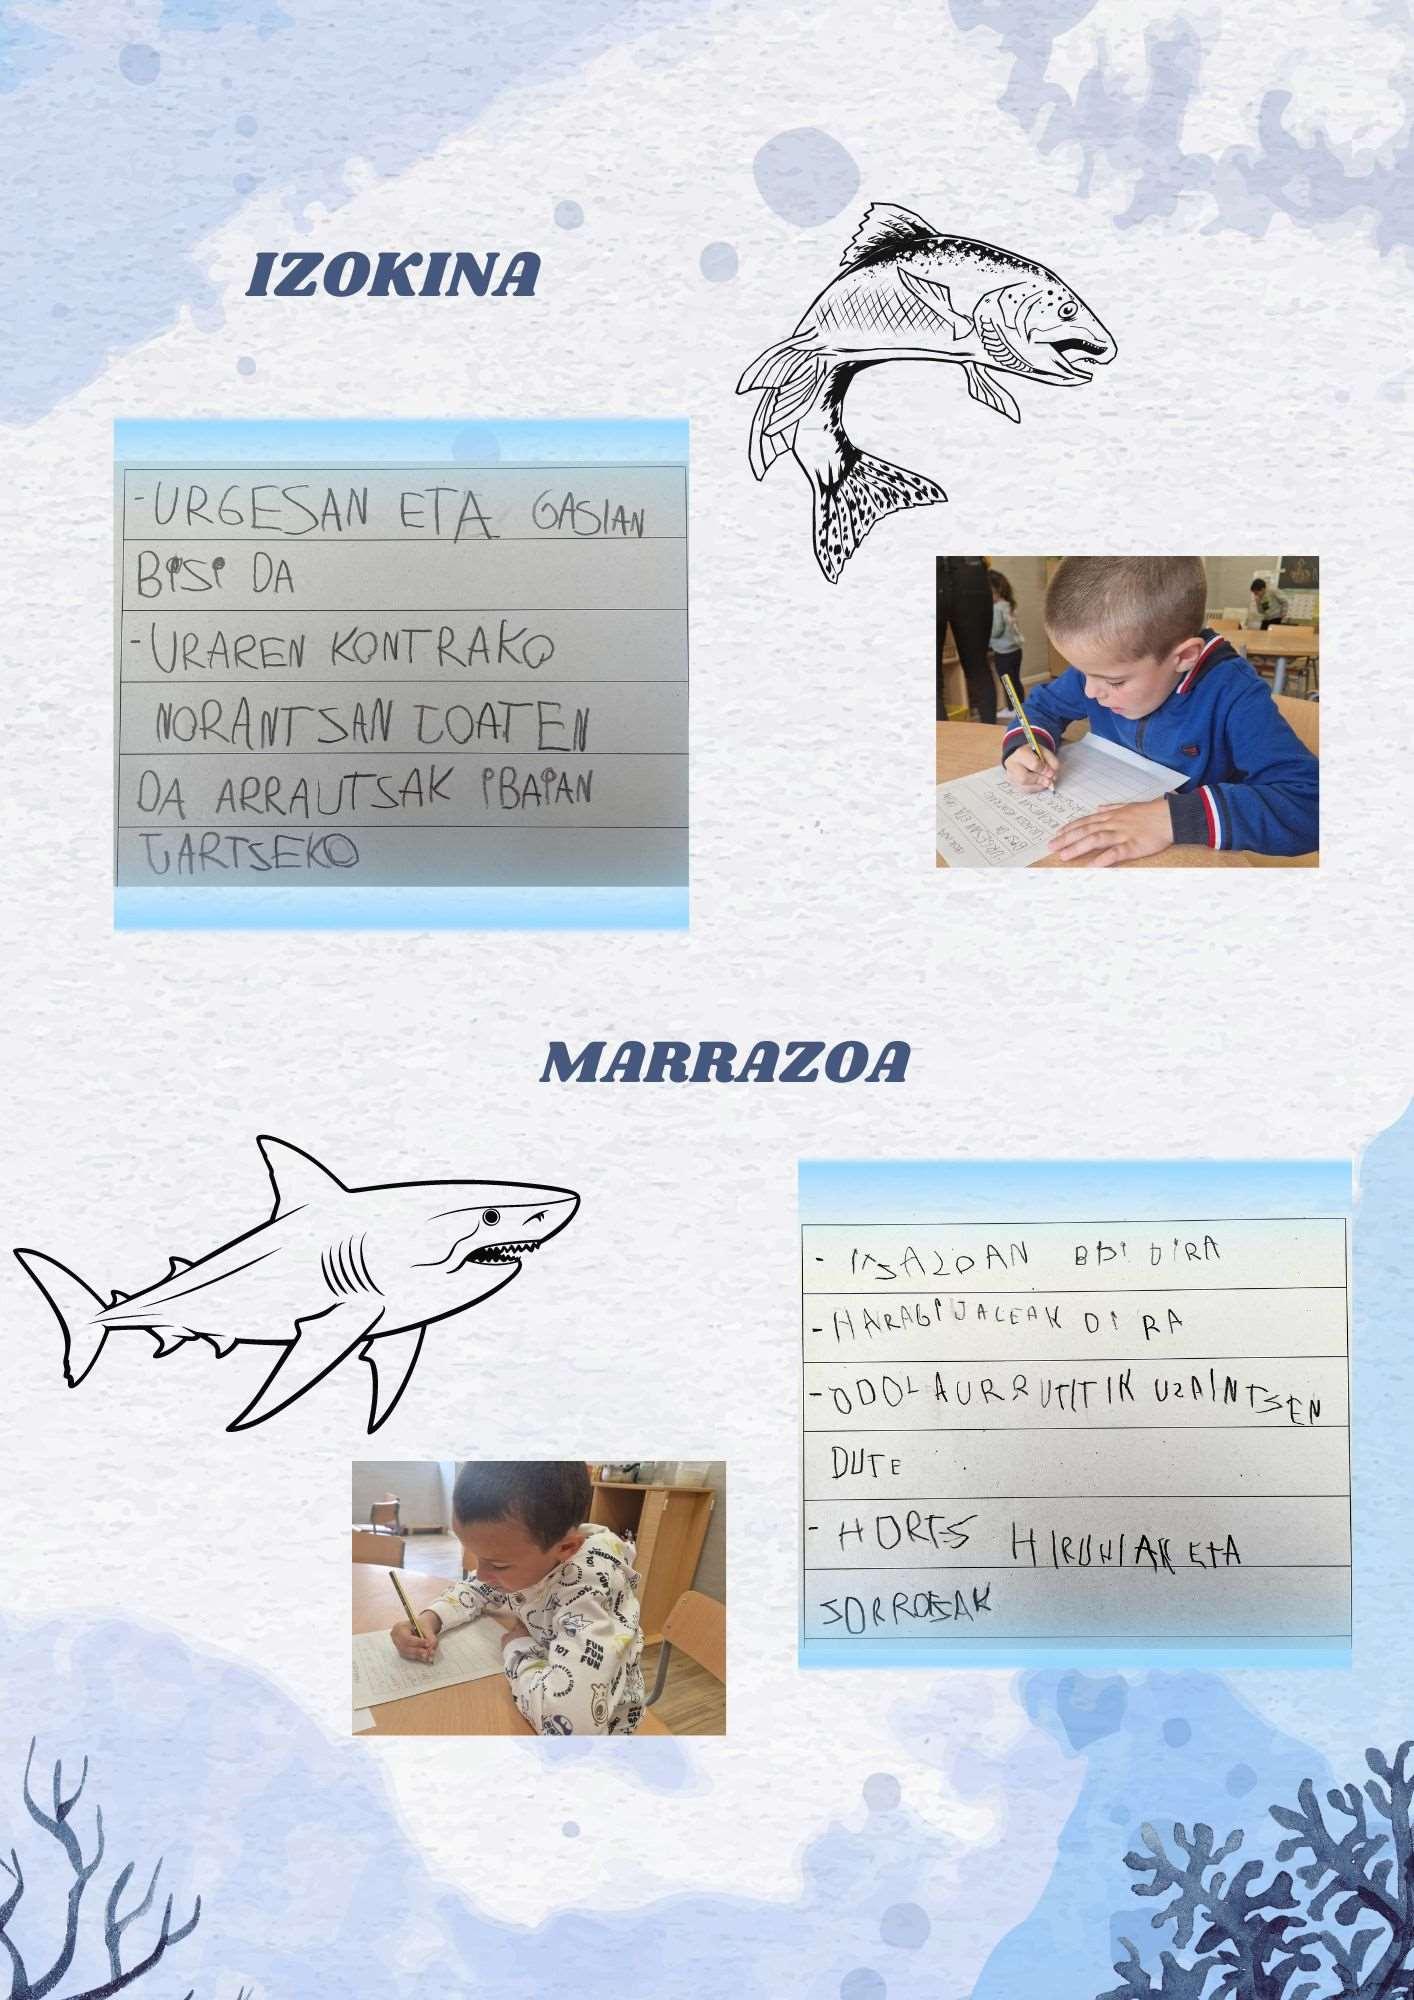 IZOKINA
-URGESAN ETA GASIAN
BISI DA
-URAREN KONTRAKO
NORANTSAN IOATEN
DA ARRAUTSAK IBAIAN
JARTSEKO
MARRAZOA
- ITSASOAN BISI DIRA
-HARAGIJALEAK DIRA
-ODOLA URRUTITIK USAINTSEN
DUTE
- HORTS HIRUKIAK ETA
SORROTSAK
FUN
FUN
FUN
101